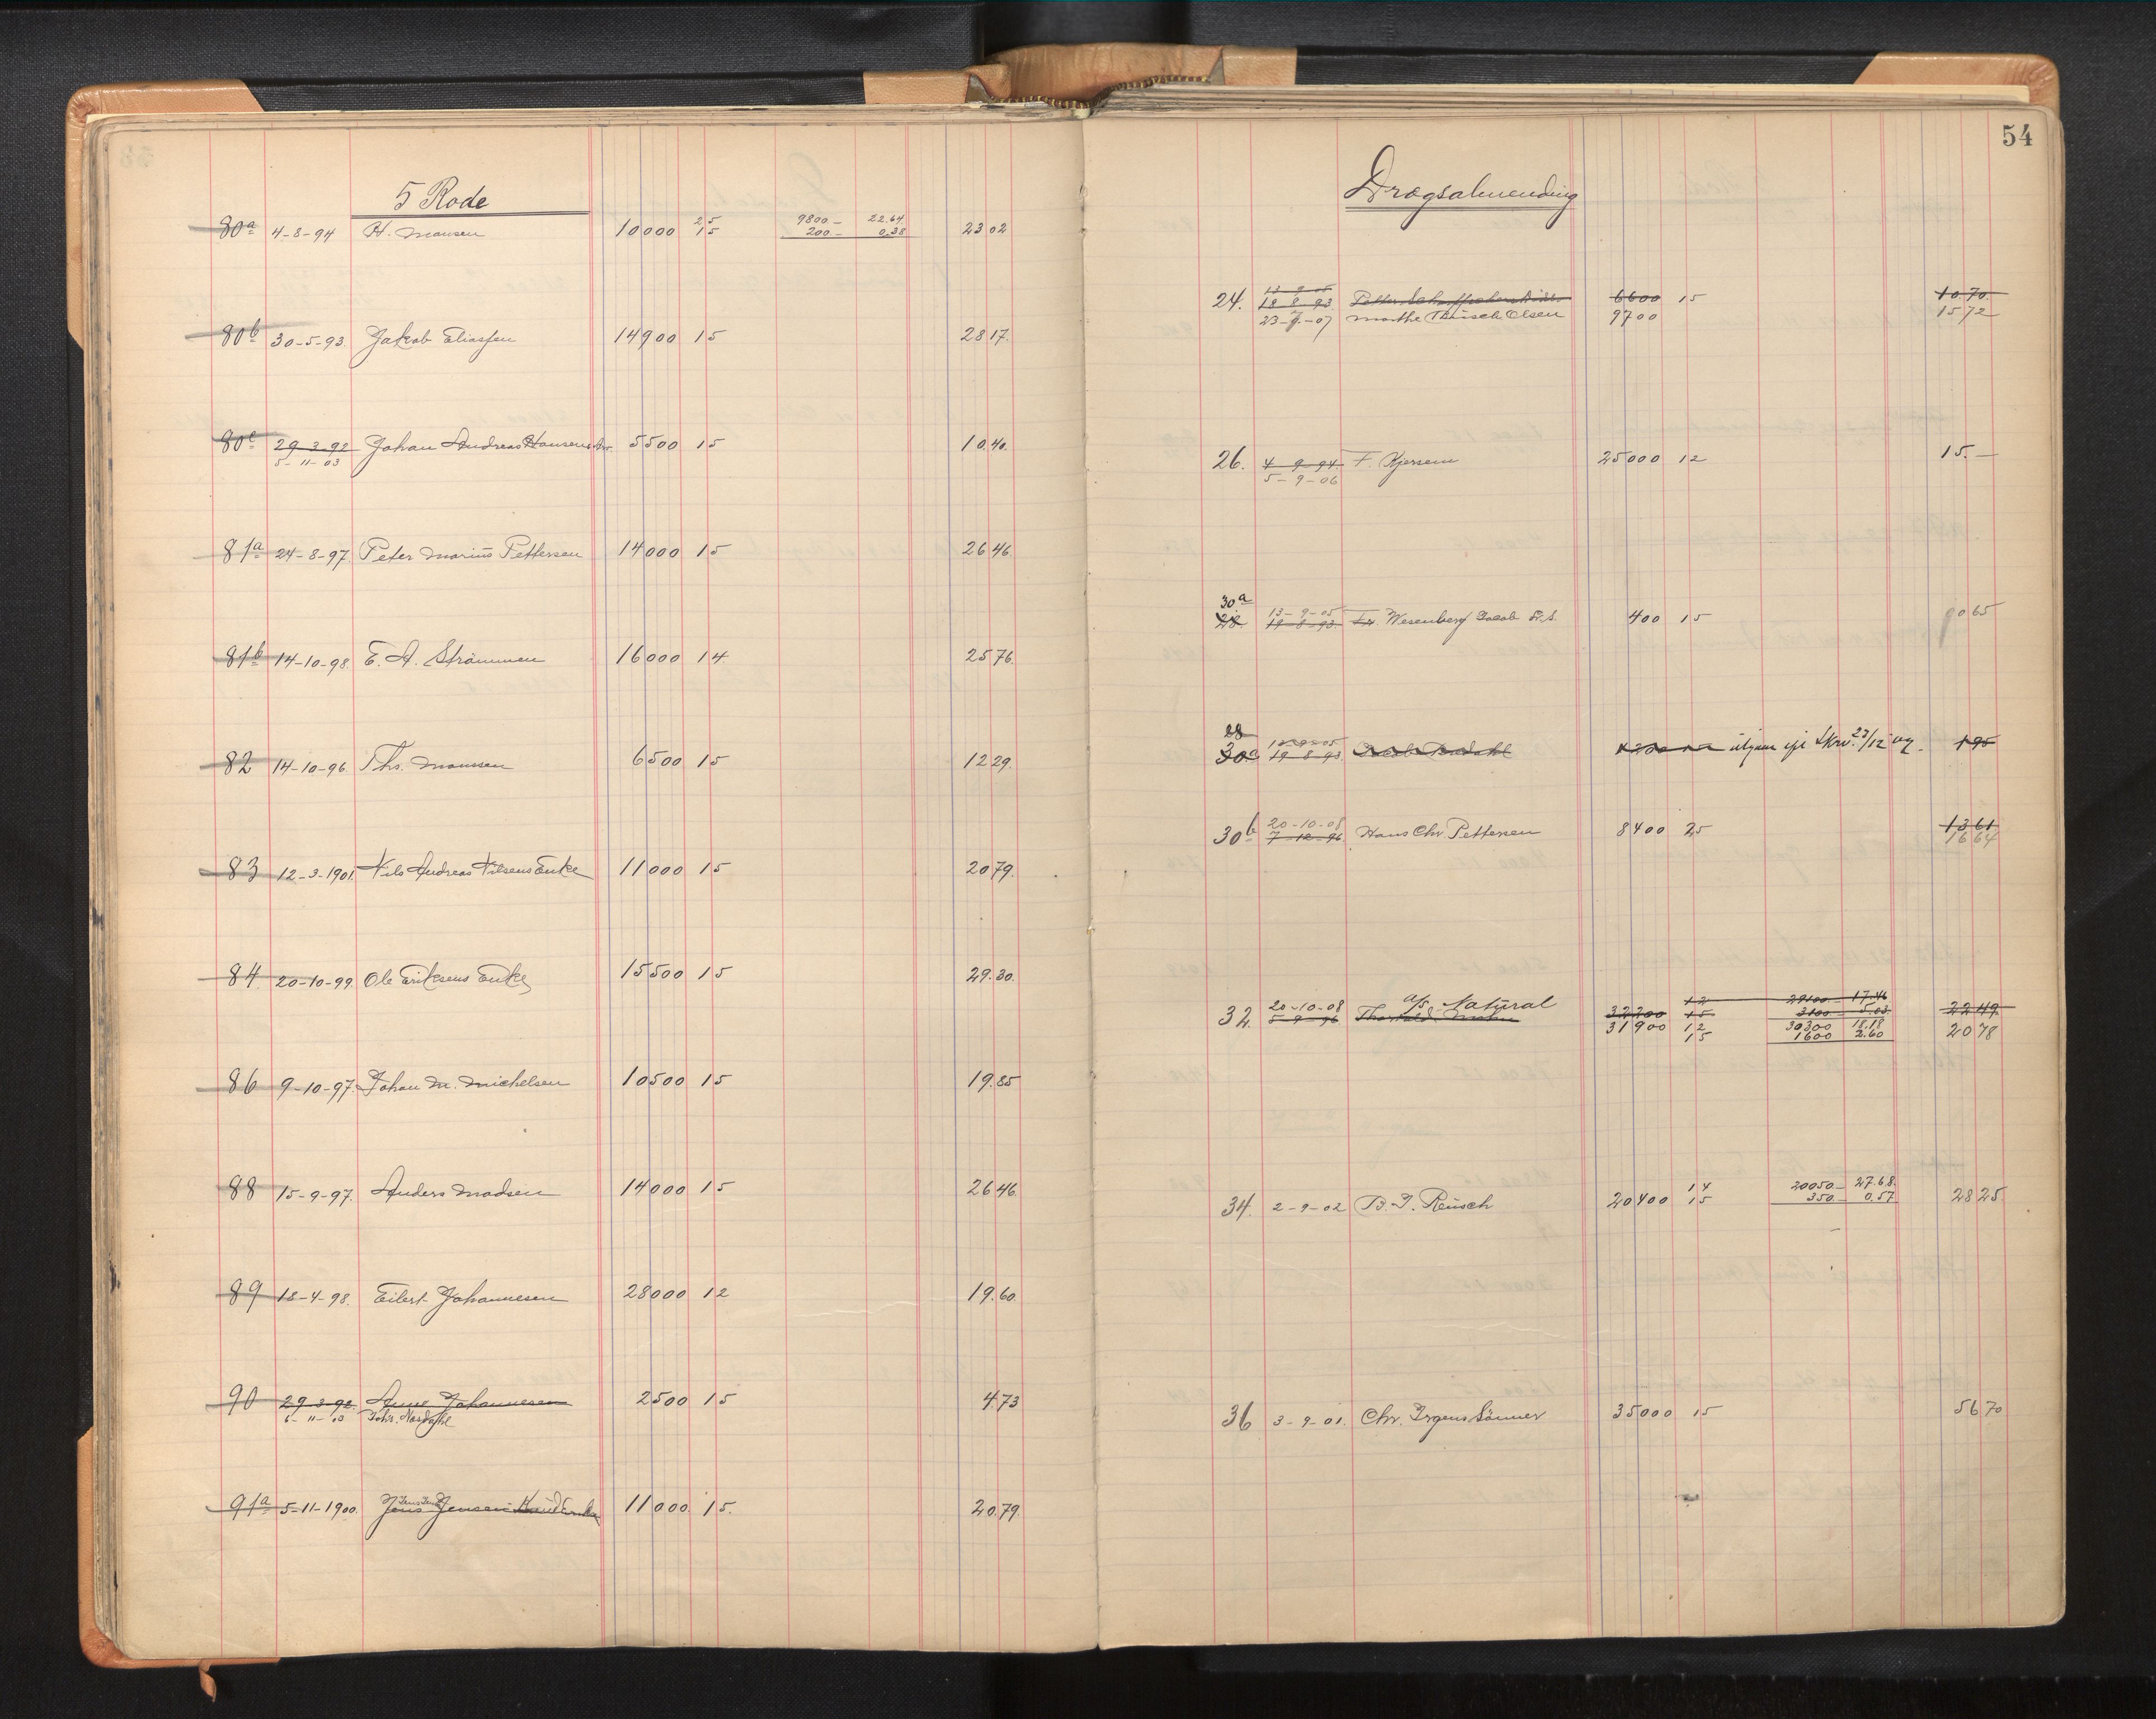 5 Rode
80a 4-8-94 H. Monsen 10000 25 15 9800 — 22.64 200 — 0.38 2302
80b 30-5-93. Jakob Eliassen 14900 15 2817.
80c 29-3-92 5-11-03 Johan Andreas Hansens 5500 15 10.40.
81a 24-8-97. Peter Marius Pettersen 14000 15 2646.
81b 14-10-98. E. A. Strömmen 16000 14 2576.
82 14-10-96. Ths. Monssen 6500 15 1229.
83 12-3-1901. Nils Andreas Nilsens Enke 11000 15 2079.
84 20-10-99. Ole Eriksens Enke 15500 15 29.30.
86 9-10-97. Johan M. Michelsen 10500 15 19.85
88 15-9-97. Anders Madsen 14000 15 2646.
89 18-4-98. Eilert Johannesen 28000 12 19.60.
90 29-3-92. Anne Johannesen 2500 15 473
Johs. Nordahl
91a 5-11-1900. Jens Jensen 11000. 15. 20.79.
54
Drægsalmending
24. 13-9-05 18-8-93 6600 15 1070.
23-7-07 Marthe Olsen 9700 1572
26. 4-9-94. F. Kjersem 25000 12 15.—
5-9-06
30a
28. 13-9-05 19-8-93. Fr. Wesenberg Jacob 400 15 065
28
30a 19-8-93 utgaar Skriv. 23/12 07. 195
30b 20-10-08 7-12-96 Hans Chr. Pettersen 8400 25 1361
1664
32. 20-10-08 5-9-96 A/S. Natural 32200 12 15 29100 — 17.46 3100 — 5.03 2249
31900 12 15 30300 18.18 1600 2.60 2078
34. 2-9-02 B. I. Reusch 20400 14 15 20050 — 27.68. 350 — 0.57 2825
36 3-9-01. Chr. Irgens Sönner 35000 15 5670